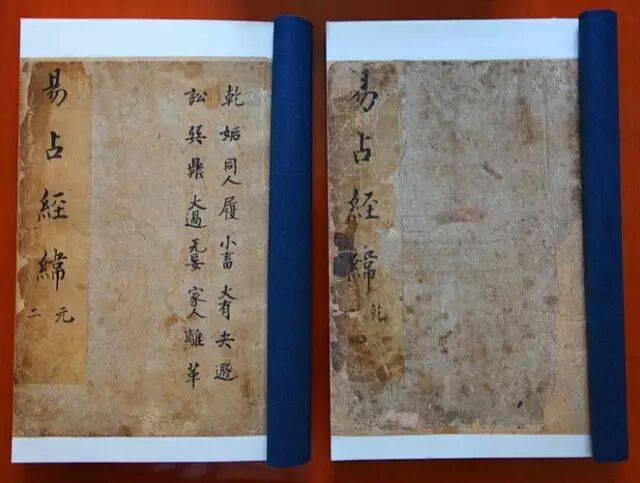 乾姤同人履小畜大有夬遯
訟巽鼎大過无妄家人離革
易占經緯
元
二
易占經緯
乾